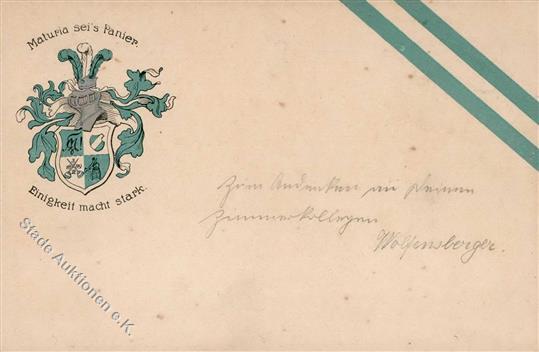 Maturia sei's Panier.
Einigkeit macht stark.
Zum Andenken an Deinen
Zimmerkollegen
Wolfensberger.
Stade Auktionen e.K.